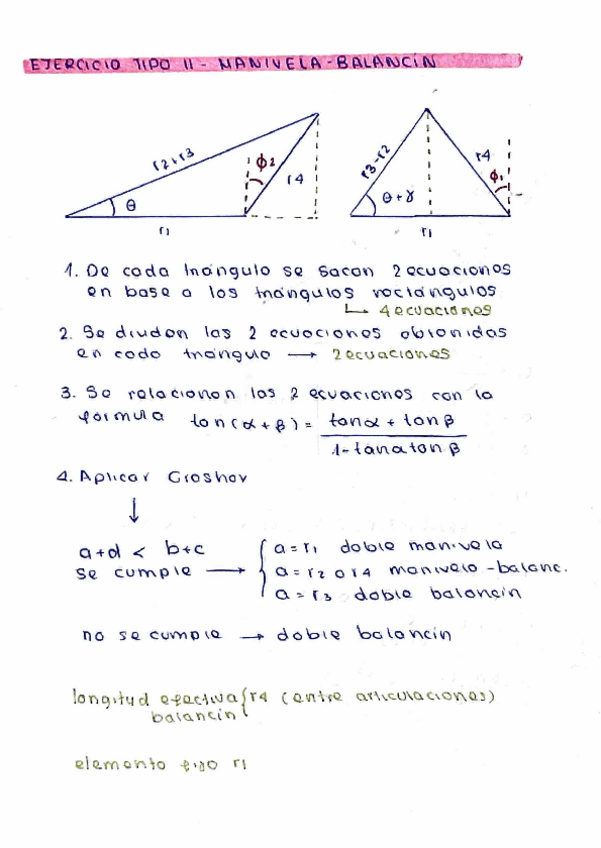 EJERCICIO TIPO II - MANIVELA-BALANCÍN
r2+r3
ϕ2
r4
θ
r1
r3-r2
r4
ϕ1
θ+γ
r1
1. De cada triángulo se sacan 2 ecuaciones
en base a los triángulos rectángulos
↳ 4 ecuaciones
2. Se dividen las 2 ecuaciones obtenidas
en cada triángulo → 2 ecuaciones
3. Se relacionan las 2 ecuaciones con la
fórmula tan(α+β) = tanα + tanβ
1-tanαtanβ
4. Aplicar Grashov
↓
a+d < b+c
se cumple →
a = r1 doble manivela
a = r2 o r4 manivela-balanc.
a = r3 doble balancín
no se cumple → doble balancín
longitud efectiva { r4 (entre articulaciones)
balancín
elemento fijo r1